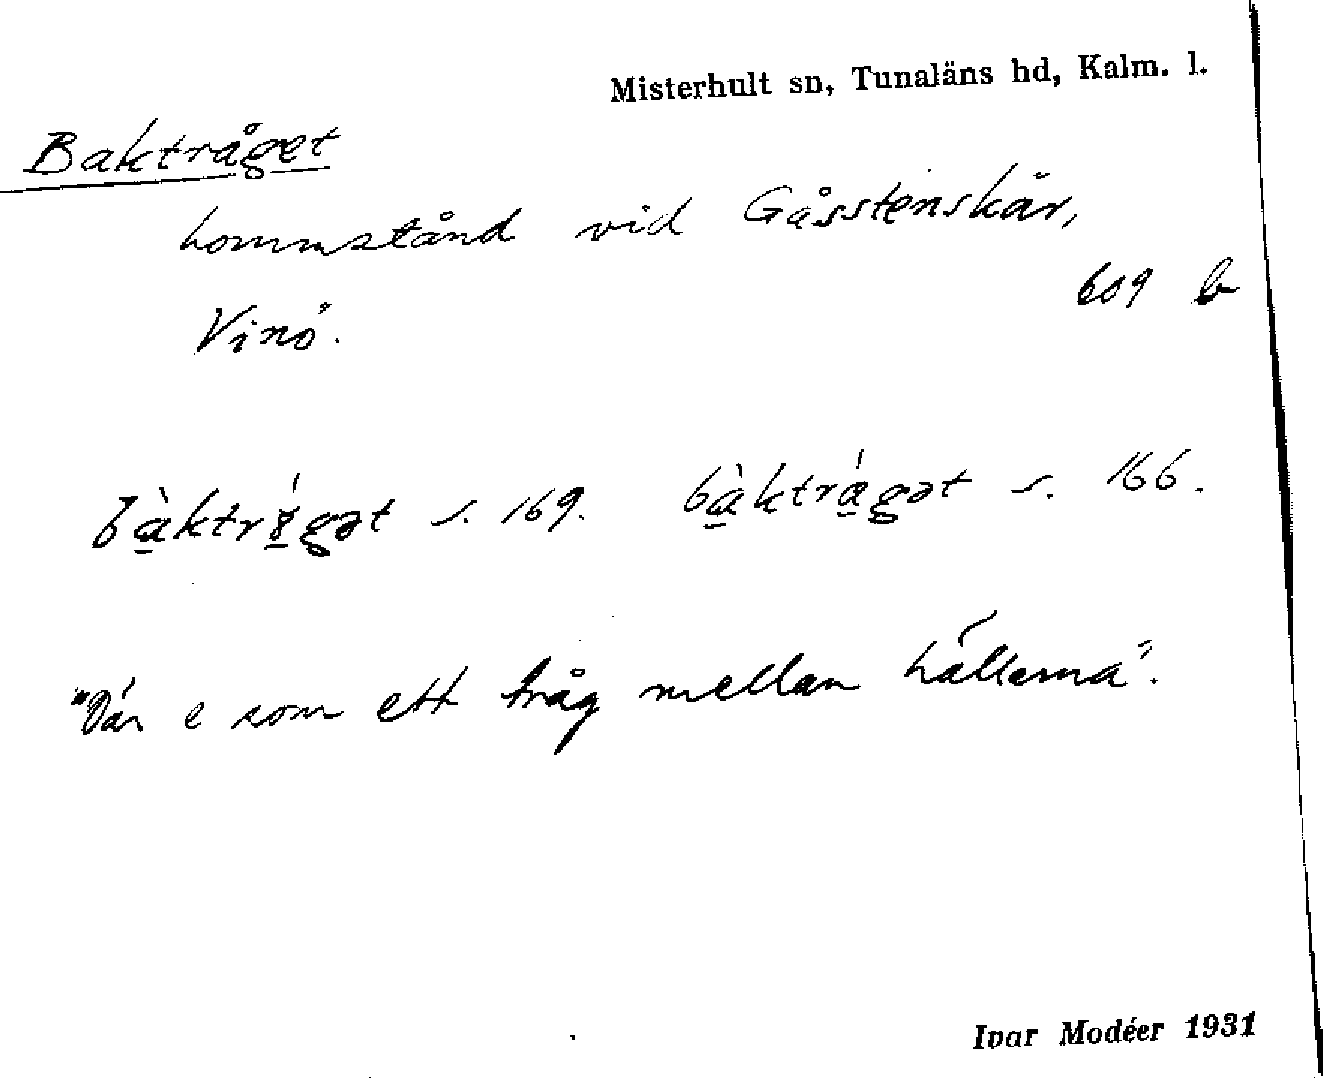 Misterhult sn, Tunaläns hd, Kalm. l.
Bakträget
hommstånd vid Gåsstenskär,
609 b
Vinö.
bàktrǻgət s. 169. bàktrágət s. 166.
"Där e som ett tråg mellan hällerna".
Ivar Modéer 1931